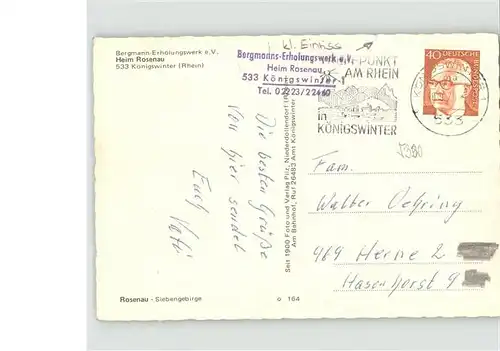 Bergmann-Erholungswerk e.V.
Heim Rosenau
533 Königswinter (Rhein)
kl. Einriss
Bergmanns-Erholungswerk e.V.
Heim Rosenau
533 Königswinter
Tel. 02223/22460
PUNKT
AM RHEIN
in
KÖNIGSWINTER
40 DEUTSCHE
533
Die besten Grüße
von hier sendet
Euch Vati
Seit 1900 Foto und Verlag Pilz, Niederdollendorf
Am Bahnhof, Ruf 26483 Amt Königswinter
Fam.
Walter Oehring
469 Herne 2
Hasenhorst 9
Rosenau - Siebengebirge
o 164